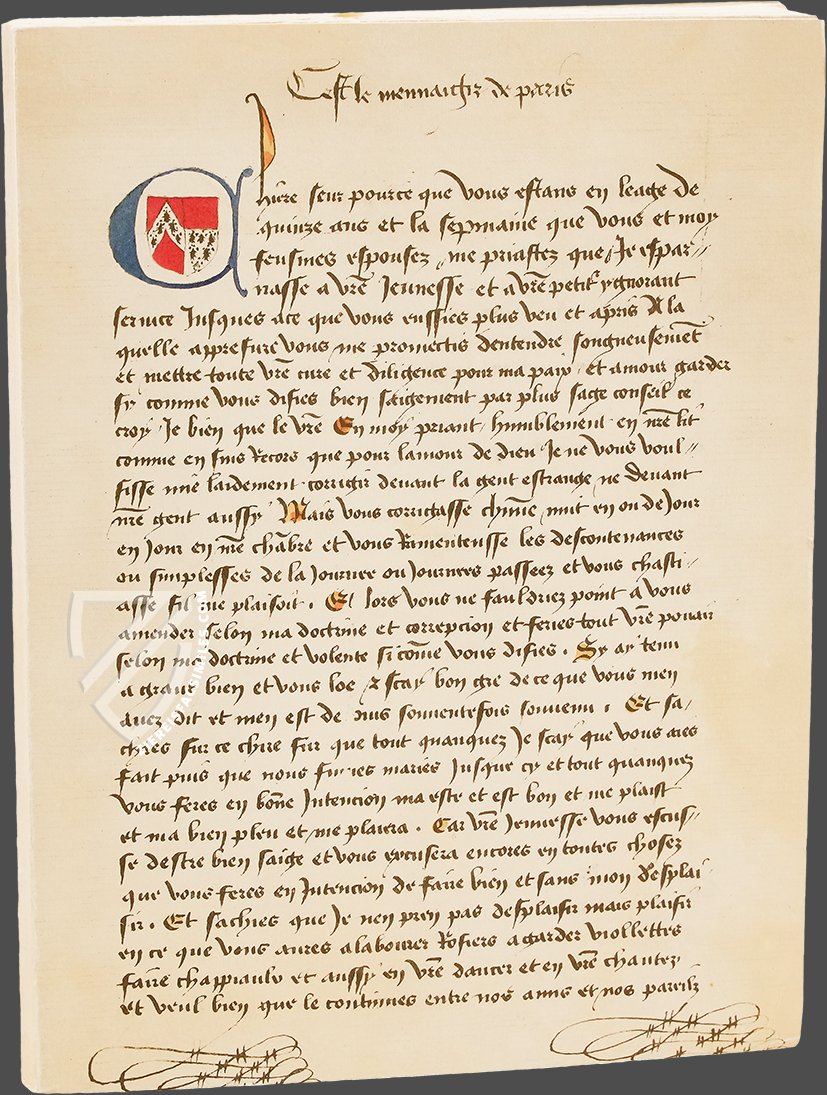 Cest le mennaigir de paris
Chiere seur pource que vous estans en leage de
quinze ans et la sepmaine que vous et moy
feusmes espousez me priastez que Je espar-
nasse a vre Jeunesse et a vre petit et ygnorant
seruice Jusques ace que vous eussies plus veu et apris A la
quelle appresure vous me promectis dentendre songneusemet
et mettre toute vre cure et diligence pour ma paix et amour garder
sy comme vous disies bien saigement par plus sage conseil ce
croy Je bien que le vre En moy priant humblement en nre lit
comme en suis Recors que pour lamour de dieu Je ne vous voul-
sisse mie laidement corrigir deuant la gent estrange ne deuant
nre gent aussy Mais vous corrigasse chune nuit en ou de Jour
en Jour en nre chabre et vous Ramenteusse les descontenances
ou simplesses de la Journee ou Journees passeez et vous chasti-
asse sil me plaisoit . Et lors vous ne fauldriez point a vous
amender selon ma doctrine et correpcion et feries tout vre pouair
selon ma doctrine et volente si come vous disies . Sy ay tenu
a grant bien et vous loe et scay bon gre de ce que vous men
auez dit et men est de puis souuentefois souuenu . Et sa-
chies sur ce chire sur que tout quanquez Je scay que vous aies
fait puis que nous fusmes maries Jusque cy et tout quanquez
vous feres en bone Intencion ma este et est bon et me plaist
et ma bien pleu et me plaiera . Car vre Jennesse vous escus-
se destre bien saige et vous excusera encores en toutes chosez
que vous feres en Intencion de faire bien et sans mon desplai
sir . Et sachies que Je nen pren pas desplaisir mais plaisir
en ce que vous aures alabourer Rosiers agarder viollettes
faire chappiaulx et aussy en vre dancer et en vre chantez
et veul bien que le continues entre nos amis et nos pareilz